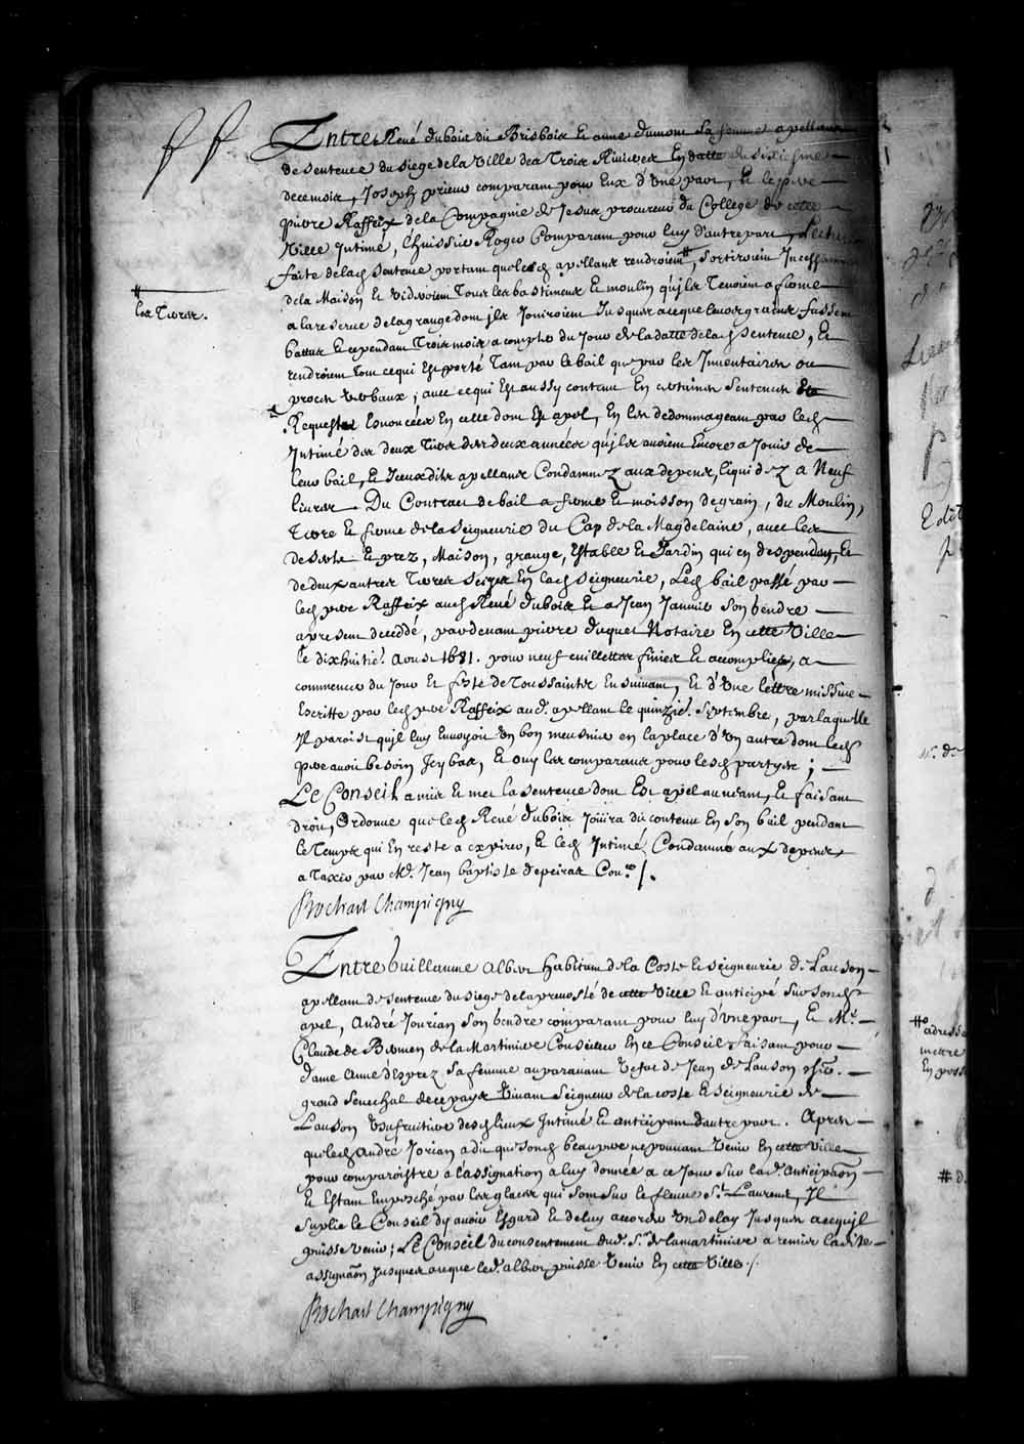 Entre René dubois dit Brisbois et anne dumont sa femme apellans
de sentence du siege de la Ville des Trois Rivieres En datte du sixiesme
decembre, Joseph prieur comparant pour Eux d'Vne part, Et le pere
pierre Raffeix de la Compagnie de Jesus procureur du College de cette
Ville Intimé, l'huissier Roger Comparant pour luy d'autre part, Lecture
faite de lad. Sentence portant que lesd. apellans rendroient#, sortiroient Incessamment
#
les Terres.
de la Maison et vid*roient Tous les bastimens et moulin qu'jls Tenoient a ferme
a la reserve de la grange dont jls Joniroient Jusques a ce que leurs grains fussent
battus Et cependant Trois mois a compter du Jour de la datte de lad. Sentence, Et
rendroient Tout ce qui Est porté Tant par le bail que par les Inventaires ou
procez verbaux, avec ce qui Est aussy contenu En certaines Sentences Et
Requestes Enoncées En celle dont Est apel, En les dedommageant par led.
Intimé des deux Tiers des deux années qu'jls avoient Encore a Jouir de
leur bail, Et Iceux dits apellans Condamnez aux depens, liquidez a Neuf
livres. Du Contract de bail a ferme Et moisson de grain, du Moulin,
Terre Et ferme de la Seigneurie du Cap de la Magdelaine, avec les
deserts Et prez, Maison, grange, Estable Et Jardin qui en despendent, Et
de deux autres Terres sizes En lad. Seigneurie, Led. bail passé par
led. pere Raffeix aud. René dubois Et a Jean Jannie son gendre
a present decedé, pardevant pierre duquet Notaire En cette Ville
le dixhuitie. Aoust 1681. pour neuf cuillettes finies Et accomplies, a
commencer du Jour Et feste de Toussaints En suivant, Et d'Vne lettre missive
Escritte par led. pere Raffeix aud. apellant le quinzie. Septembre, par laquelle
Il paroist qu'jl luy Envoyoit Vn bon meusnier en la place d'Vn autre dont led.
pere avoit besoin Icy bas, Et ouy les comparans pour lesd. partyes;
Le Conseil a mis Et met la sentence dont Est apel au neant, Et faisant
droit, Ordonne que led. René dubois Joüira du contenu En son bail pendant
le Temps qui En reste a expirer, Et led. Intimé Condamné aux depens
a Taxer par Me. Jean baptiste depeiras Conser./.
Bochart Champigny
Entre Guillaume Albert habitant de la Coste Et Seigneurie de Lauson
apellant de Sentence du siege de la prevosté de cette Ville Et anticipé sur sond.
apel, André Jourian son gendre comparant pour luy d'vne part, Et Me.
Claude de Bermen de la Martiniere Conseiller En ce Conseil faisant pour
dame Anne despréz sa femme auparavant Vefve de Jean de Lauson
grand Senechal de ce pays Vivant Seigneur de la coste Et Seigneurie de
Lauson Vsufruitiere desd. lieux Intimé Et anticipant d'autre part. Apres
que led. André Jorian a dit que sond. beaupere ne pouvant Venir En cette Ville
pour comparoistre a l'assignation a luy donnée a ce Jour sur lad. Anticipaōn
Et Estant Empesché par les glaces qui sont sur le fleuve St. Laurent, Il
suplie le Conseil d'y avoir Esgard Et de luy accorder Vn delay Jusques a ce qu'jl
puisse venir; Le Conseil du consentement dud. Sr. de la martiniere a remis ladite
assignaōn Jusques a ce que led. albert puisse Venir En cette Ville./.
Bochart Champigny
adresse
mettre